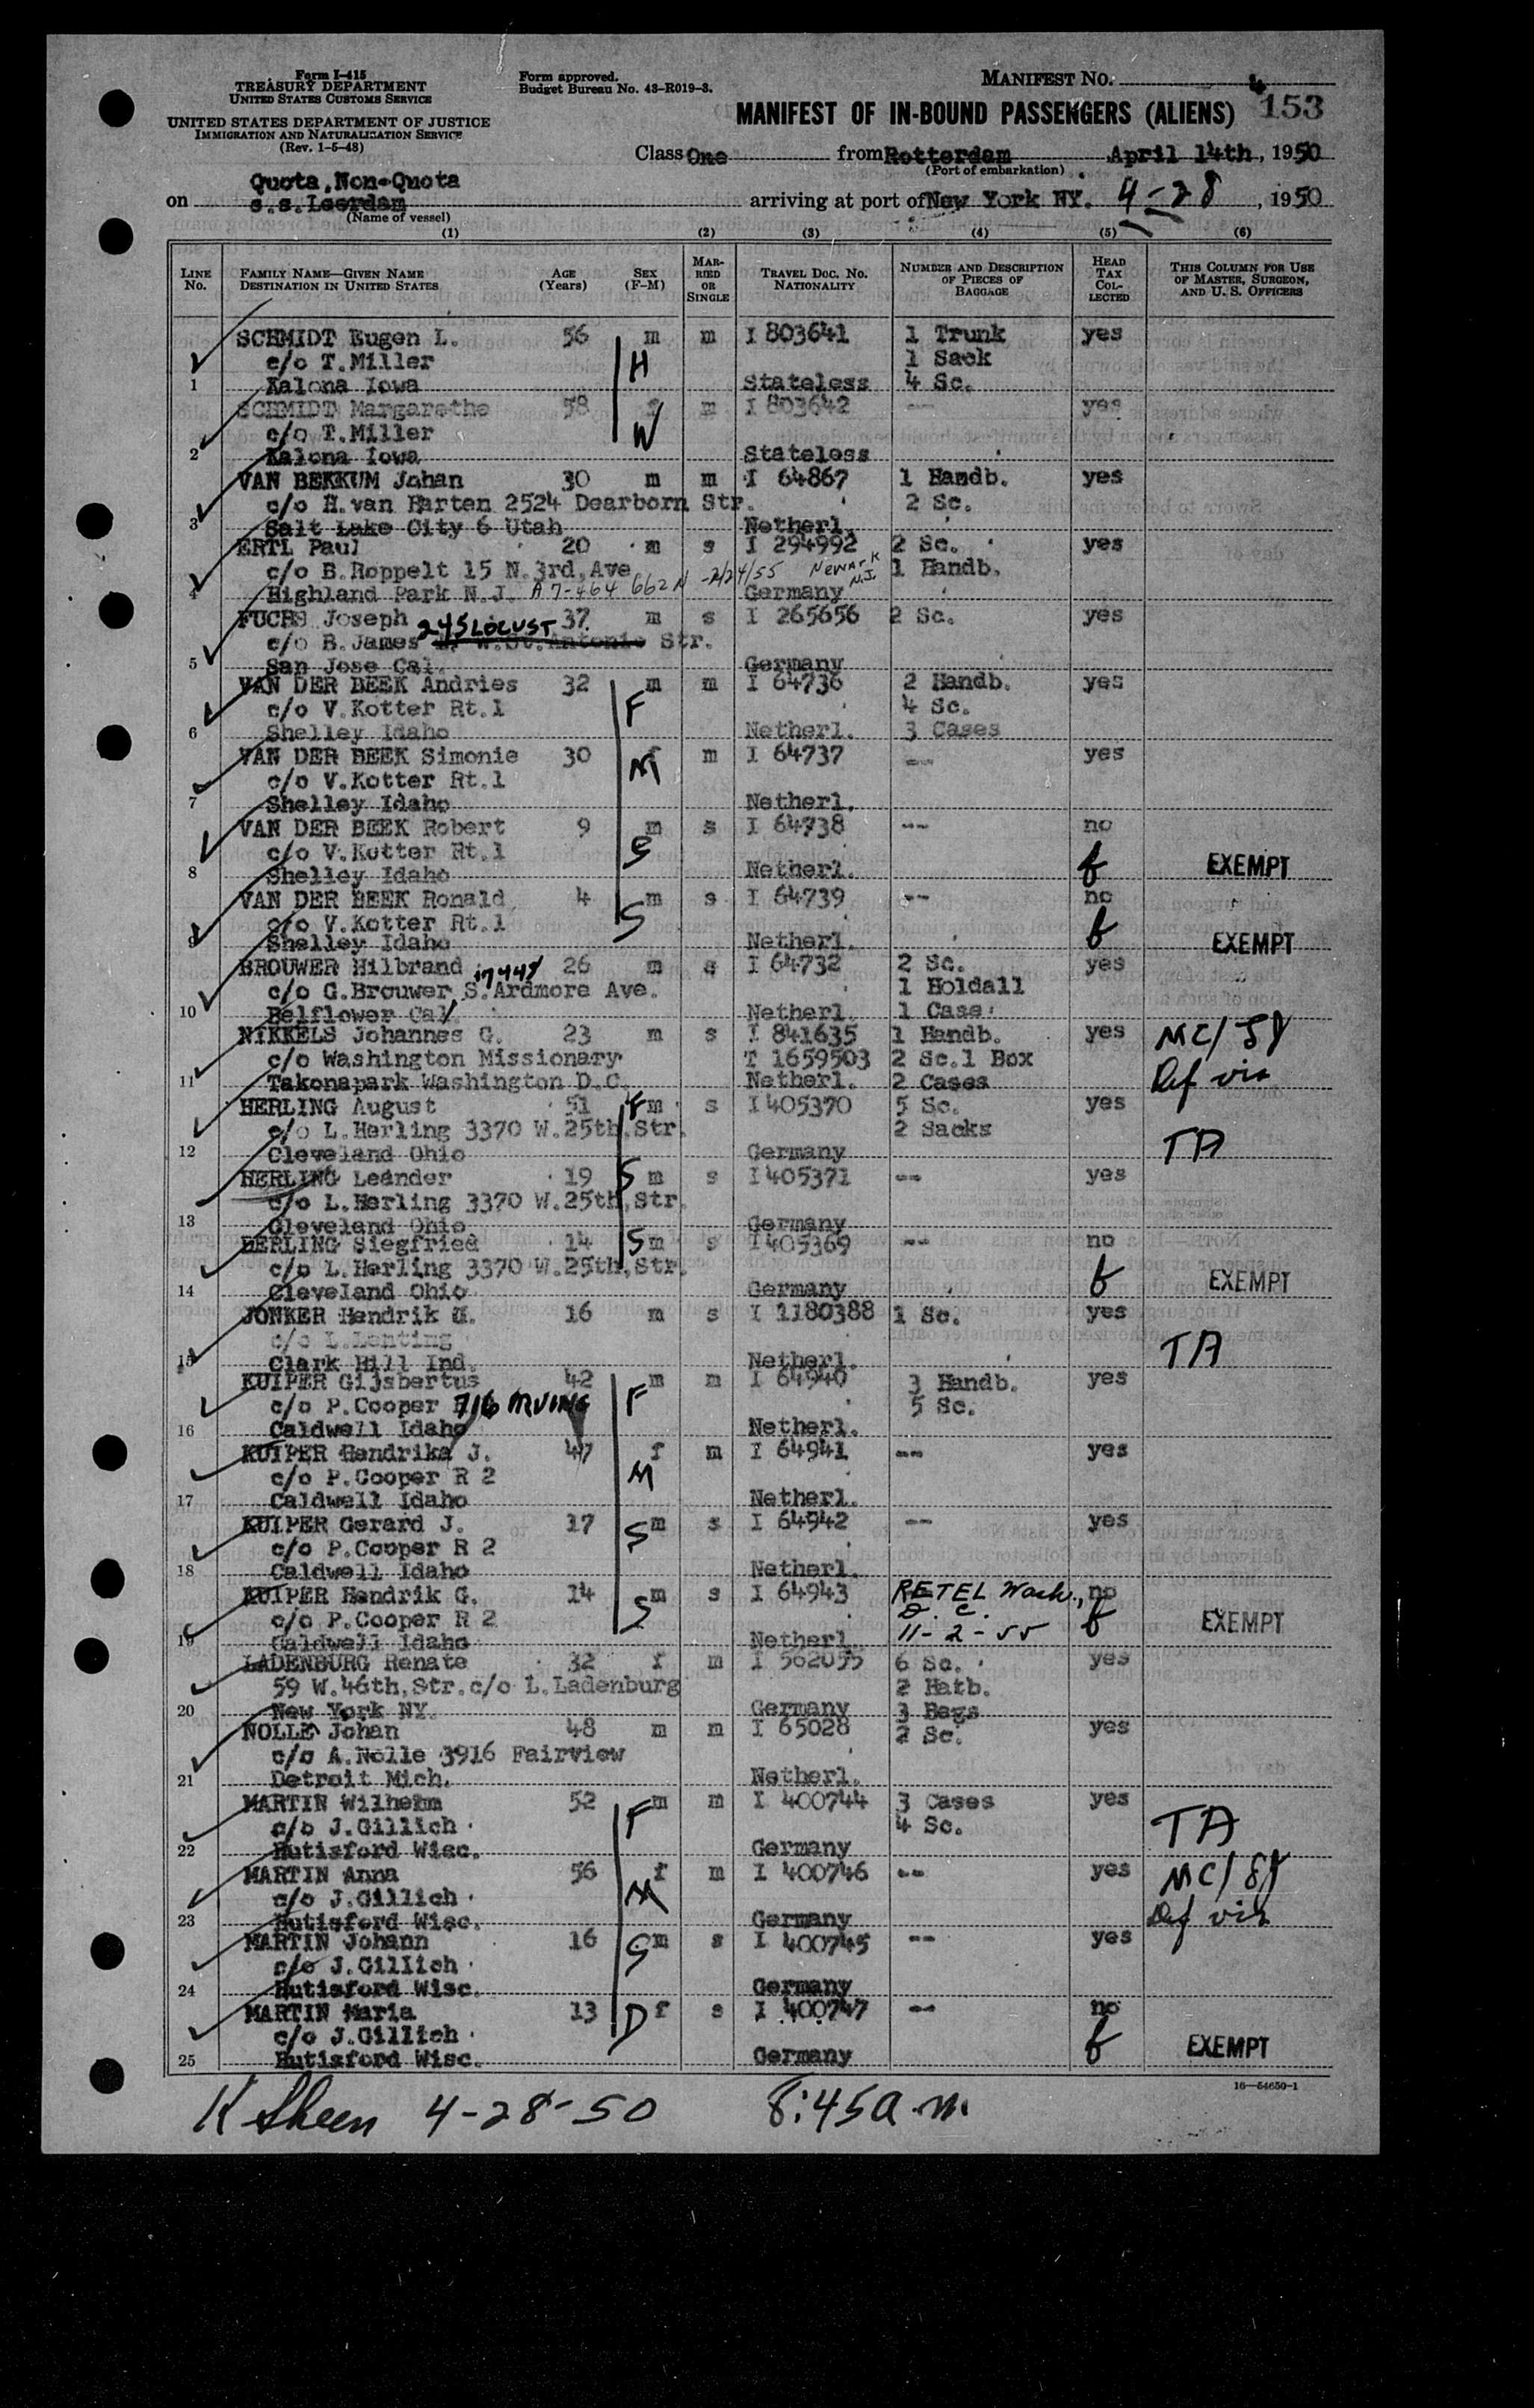 Form I-415
TREASURY DEPARTMENT
UNITED STATES CUSTOMS SERVICE
UNITED STATES DEPARTMENT OF JUSTICE
IMMIGRATION AND NATURALIZATION SERVICE
(Rev. 1-5-48)
Form approved.
Budget Bureau No. 43-R019-3.
MANIFEST NO.
4
MANIFEST OF IN-BOUND PASSENGERS (ALIENS) 153
Class One from Rotterdam April 14th, 1950
(Port of embarkation)
Quota, Non-Quota
on s.s. Leerdam arriving at port of New York NY. 4-28, 1950
(Name of vessel)
(1) (2) (3) (4) (5) (6)
LINE No. FAMILY NAME—GIVEN NAME DESTINATION IN UNITED STATES AGE (Years) SEX (F-M) MARRIED OR SINGLE TRAVEL DOC. NO. NATIONALITY NUMBER AND DESCRIPTION OF PIECES OF BAGGAGE HEAD TAX COLLECTED THIS COLUMN FOR USE OF MASTER, SURGEON, AND U. S. OFFICERS
SCHMIDT Eugen L. 56 m m I 803641 1 Trunk yes
c/o T.Miller H 1 Sack
1 Kalona Iowa Stateless 4 Sc.
SCHMIDT Margarethe 58 f m I 803642 -- yes
c/o T.Miller W
2 Kalona Iowa Stateless
VAN BEKKUM Johan 30 m m I 64867 1 Handb. yes
c/o H.van Harten 2524 Dearborn Str. 2 Sc.
3 Salt Lake City 6 Utah Netherl.
ERTL Paul 20 m s I 294992 2 Sc. yes
c/o B.Roppelt 15 N.3rd,Ave Newark N.J. 1 Handb.
4 Highland Park N.J. A7-464 662 N -2/24/55 Germany
FUCHS Joseph 37 m s I 265656 2 Sc. yes
245 LOCUST
c/o B.James W.St.Antonio Str.
5 San Jose Cal. Germany
VAN DER BEEK Andries 32 m m I 64736 2 Handb. yes
c/o V.Kotter Rt.1 F 4 Sc.
6 Shelley Idaho Netherl. 3 Cases
VAN DER BEEK Simonie 30 f m I 64737 -- yes
c/o V.Kotter Rt.1 M
7 Shelley Idaho Netherl.
VAN DER BEEK Robert 9 m s I 64738 -- no
c/o V.Kotter Rt.1 S
8 Shelley Idaho Netherl. EXEMPT
VAN DER BEEK Ronald 4 m s I 64739 -- no
c/o V.Kotter Rt.1 S
9 Shelley Idaho Netherl. EXEMPT
BROUWER Hilbrand 26 m s I 64732 2 Sc. yes
c/o G.Brouwer S.Ardmore Ave. 1 Holdall
10 Belflower Cal. Netherl. 1 Case
NIKKELS Johannes G. 23 m s I 841635 1 Handb. yes
c/o Washington Missionary T 1659503 2 Sc.1 Box
11 Takonapark Washington D.C. Netherl. 2 Cases Def vis
HERLING August 51 F m s I 405370 5 Sc. yes
c/o L.Herling 3370 W.25th,Str. 2 Sacks
12 Cleveland Ohio Germany TA
HERLING Leander 19 S m s I 405371 -- yes
c/o L.Herling 3370 W.25th,Str.
13 Cleveland Ohio Germany
HERLING Siegfried 14 S m s I 405369 -- no
c/o L.Herling 3370 W.25th,Str.
14 Cleveland Ohio Germany EXEMPT
JONKER Hendrik U. 16 m s I 1180388 1 Sc. yes
c/o L.Lenting TA
15 Clark Hill Ind. Netherl.
KUIPER Gijsbertus 42 m m I 64940 3 Handb. yes
c/o P.Cooper 716 IRVING F 5 Sc.
16 Caldwell Idaho Netherl.
KUIPER Hendrika J. 47 f m I 64941 -- yes
c/o P.Cooper R 2 M
17 Caldwell Idaho Netherl.
KUIPER Gerard J. 17 S m s I 64942 -- yes
c/o P.Cooper R 2
18 Caldwell Idaho Netherl.
KUIPER Hendrik G. 14 S m s I 64943 RETEL Wash., no
c/o P.Cooper R 2 D. C. EXEMPT
19 Caldwell Idaho Netherl. 11-2-55
LADENBURG Renate 32 f m I 562055 6 Sc. yes
59 W.46th,Str.c/o L.Ladenburg 2 Hatb.
20 New York NY. Germany 3 Bags
NOLLE Johan 48 m m I 65028 2 Sc. yes
c/o A.Nolle 3916 Fairview
21 Detroit Mich. Netherl.
MARTIN Wilhelm 52 m m I 400744 3 Cases yes
c/o J.Gillich F 4 Sc. TA
22 Hutisford Wisc. Germany
MARTIN Anna 56 f m I 400746 -- yes
c/o J.Gillich M
23 Hutisford Wisc. Germany Def vis
MARTIN Johann 16 S m s I 400745 -- yes
c/o J.Gillich
24 Hutisford Wisc. Germany
MARTIN Maria 13 D f s I 400747 -- no
c/o J.Gillich
25 Hutisford Wisc. Germany EXEMPT
16—54650-1
K Sheen 4-28-50 8:45 a.m.